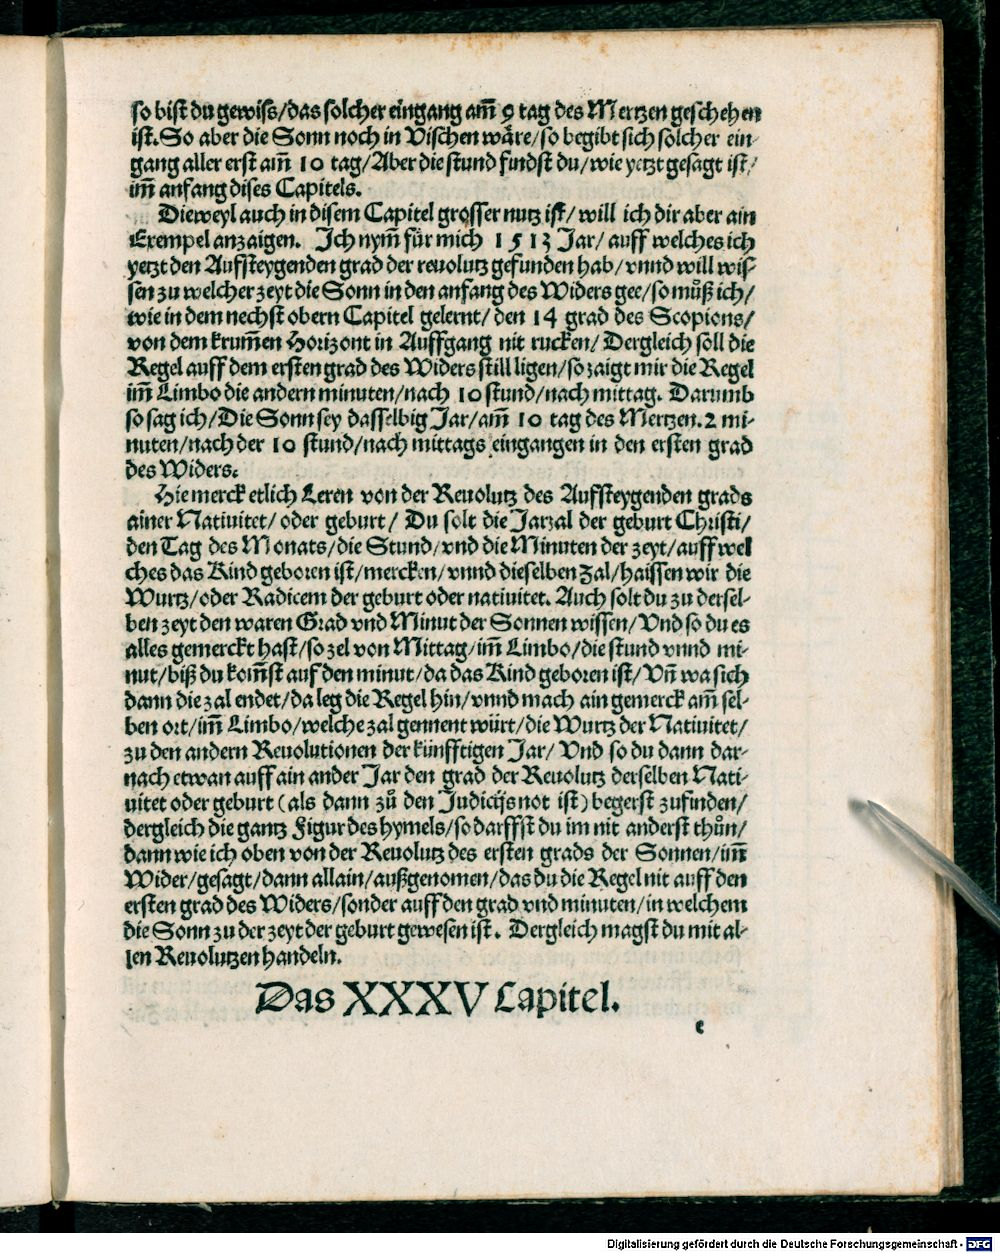 so bist du gewiss/das solcher eingang am̄ 9 tag des Mertzen geschehen
ist. So aber die Sonn noch in Vischen wäre/so begibt sich solcher ein-
gang aller erst am̄ 10 tag/Aber die stund findst du/wie yetzt gesagt ist/
im̄ anfang dises Capitels.
Dieweyl auch in disem Capitel grosser nutz ist/ will ich dir aber ain
Exempel anzaigen. Ich nym̄ für mich 1513 Jar/ auff welches ich
yetzt den Aufsteygenden grad der reuolutz gefunden hab/vnnd will wis-
sen zu welcher zeyt die Sonn in den anfang des Widers gee/so můß ich/
wie in dem nechst obern Capitel gelernt/ den 14 grad des Scopions/
von dem krum̄en Horizont in Auffgang nit rucken/ Dergleich soll die
Regel auff dem ersten grad des Widers still ligen/so zaigt mir die Regel
im̄ Limbo die andern minuten/nach 10 stund/nach mittag. Darumb
so sag ich/Die Sonn sey dasselbig Jar/am̄ 10 tag des Mertzen.2 mi-
nuten/nach der 10 stund/nach mittags eingangen in den ersten grad
des Widers.
Hie merck etlich Leren von der Reuolutz des Aufsteygenden grads
ainer Natiuitet/oder geburt/ Du solt die Jarzal der geburt Christi/
den Tag des Monats/die Stund/vnd die Minuten der zeyt/auff wel
ches das Kind geboren ist/mercken/vnnd dieselben Zal/haissen wir die
Wurtz/oder Radicem der geburt oder natiuitet. Auch solt du zu dersel-
ben zeyt den waren Grad vnd Minut der Sonnen wissen/Vnd so du es
alles gemerckt hast/so zel von Mittag/im̄ Limbo/die stund vnnd mi-
nut/biß du kom̄st auf den minut/da das Kind geboren ist/Vn̄ wa sich
dann die zal endet/da leg die Regel hin/vnnd mach ain gemerck am̄ sel-
ben ort/im̄ Limbo/welche zal gennent würt/die Wurtz der Natiuitet/
zu den andern Reuolutionen der künfftigen Jar/ Vnd so du dann dar-
nach etwan auff ain ander Jar den grad der Reuolutz derselben Nati-
uitet oder geburt (als dann zů den Judicijs not ist) begerst zufinden/
dergleich die gantz Figur des hymels/so darffst du im nit anderst thůn/
dann wie ich oben von der Reuolutz des ersten grads der Sonnen/im̄
Wider/gesagt/dann allain/außgenomen/das du die Regel nit auff den
ersten grad des Widers/sonder auff den grad vnd minuten/in welchem
die Sonn zu der zeyt der geburt gewesen ist. Dergleich magst du mit al-
len Reuolutzen handeln.
Das XXXV Capitel.
e
Digitalisierung gefördert durch die Deutsche Forschungsgemeinschaft - DFG